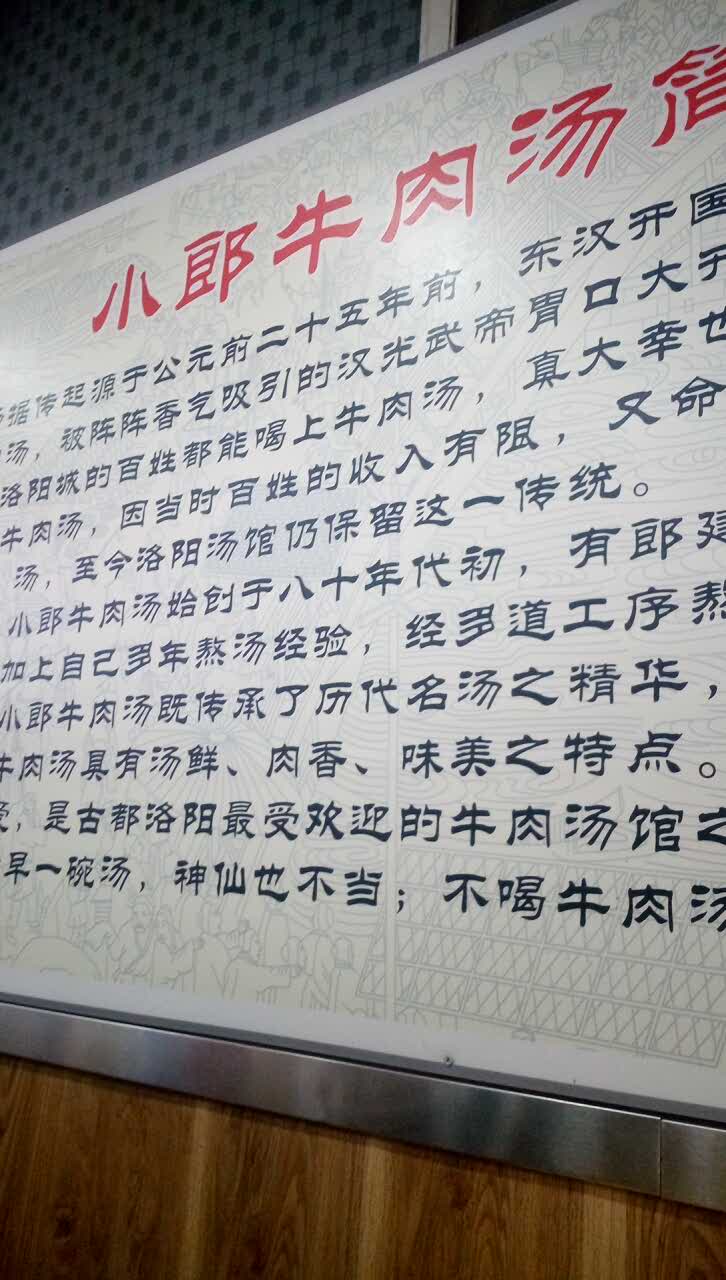 小郎牛肉汤简
汤据传起源于公元前二十五年前，东汉开国
汤，被阵阵香气吸引的汉光武帝胃口大开
洛阳城的百姓都能喝上牛肉汤，真大幸也
牛肉汤，因当时百姓的收入有限，又命
汤，至今洛阳汤馆仍保留这一传统。
小郎牛肉汤始创于八十年代初，有郎建
加上自己多年熬汤经验，经多道工序熬
小郎牛肉汤既传承了历代名汤之精华，
牛肉汤具有汤鲜、肉香、味美之特点。
爱，是古都洛阳最受欢迎的牛肉汤馆之
早一碗汤，神仙也不当；不喝牛肉汤